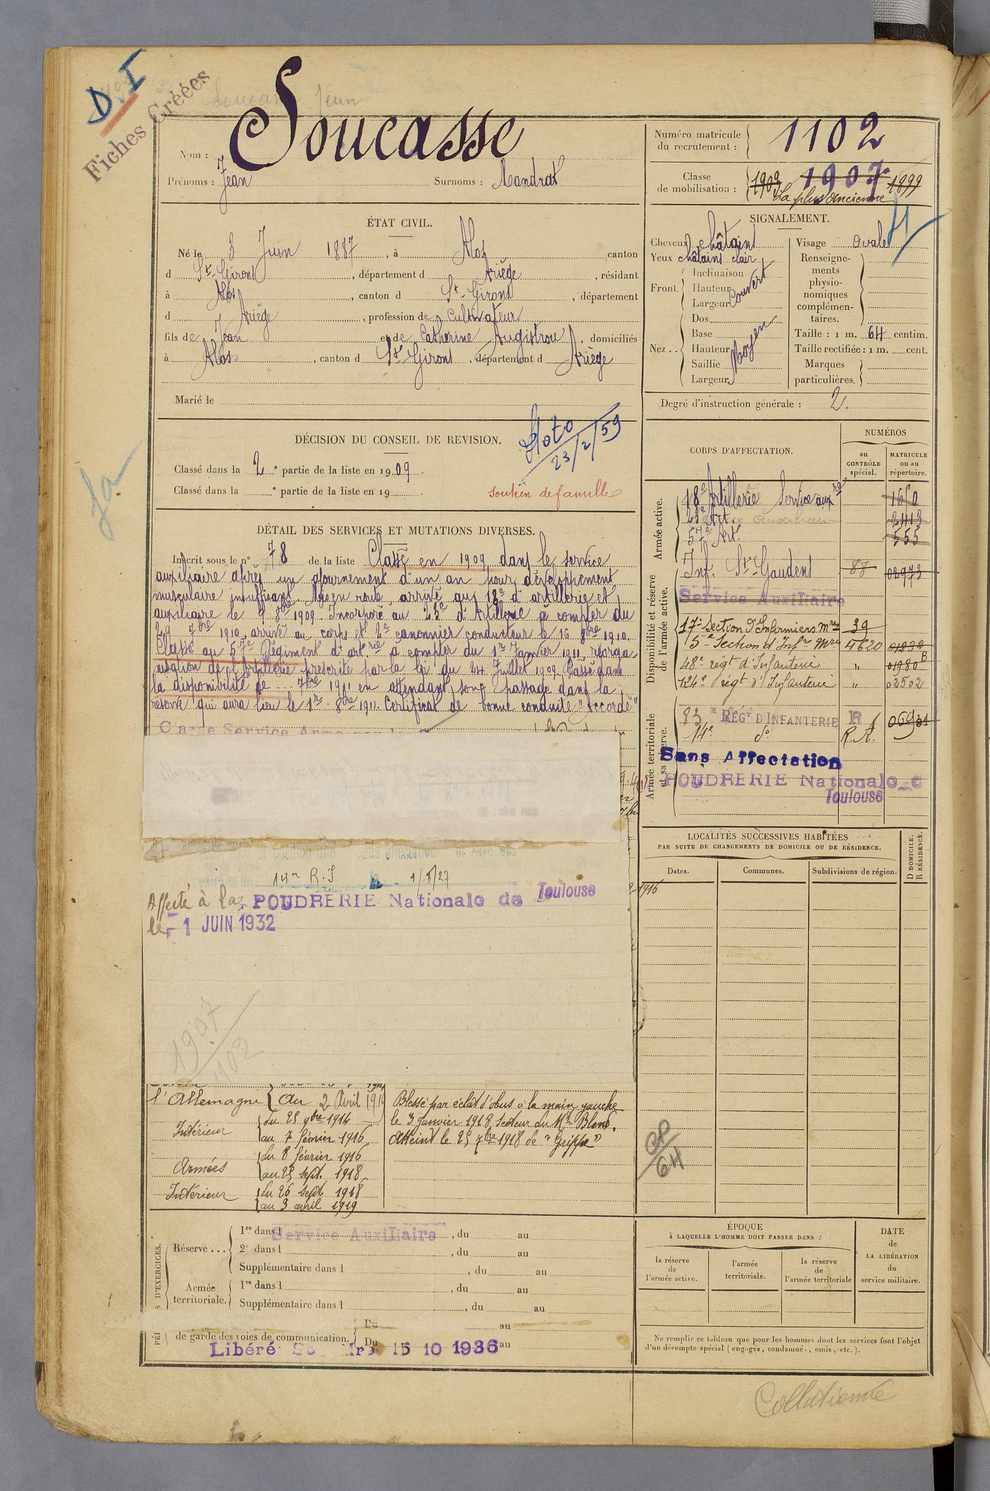 D.I
Fiches Créées
Soucasse Jean
Nom : Soucasse
Prénoms : Jean
Surnoms : Mandrat
Numéro matricule du recrutement : 1102
Classe de mobilisation : 1909 1907 1899
La plus ancienne
ÉTAT CIVIL.
Né le 8 Juin 1887, à Alos canton
d St-Girons, département d Ariège, résidant
à Alos, canton d St Girons, département
d Ariège, profession de Cultivateur
fils de Jean et de Catherine Augistrou, domiciliés
à Alos, canton d St Girons, département d Ariège
Marié le
SIGNALEMENT.
Cheveux châtains
Yeux châtains clair
Front. Inclinaison
Hauteur
Largeur
Couvert
Nez .. Dos
Base
Hauteur
Saillie
Largeur
Moyen
Visage ovale
Renseignements physionomiques complémentaires.
Taille : 1 m. 64 centim.
Taille rectifiée : 1 m. cent.
Marques particulières.
Degré d'instruction générale : 2.
DÉCISION DU CONSEIL DE REVISION.
Classé dans la 2e partie de la liste en 1909.
Classé dans la e partie de la liste en 19
23/2/59
soutien de famille
DÉTAIL DES SERVICES ET MUTATIONS DIVERSES.
Inscrit sous le n° 78 de la liste Classé en 1909 dans le service
auxiliaire après un ajournement d'un an pour développement
musculaire insuffisant. arrivé au 18e d'artillerie et
auxiliaire le 9 8bre 1909. Incorporé au 23e d'Artillerie à compter du
7bre 1910, arrivé au corps et 2e canonnier conducteur le 16 8bre 1910.
Classé au 57e Régiment d'artrie à compter du 1er Janvier 1911, réorga-
nisation de l'artillerie prescrite par la loi du 24 Juillet 1909. Passé dans
la disponibilité le 7bre 1911 en attendant son passage dans la
réserve qui aura lieu le 1er 8bre 1911. Certificat de bonne conduite "accordé"
14e R.I 1/5/27
Affecté à la POUDRERIE Nationale de Toulouse
le - 1 JUIN 1932
1907
1102
l'Allemagne au 2 Avril 1919
Intérieur
au 7 février 1916
Armées du 8 février 1916
au 25 sept. 1918
Intérieur du 26 Septe 1918
au 3 avril 1919
Blessé par éclat d'obus à la main gauche
le 3 Janvier 1918, Secteur du Mt Blond.
Atteint le 25 7bre 1918 de "Grippe"
CORPS D'AFFECTATION.
NUMÉROS
au CONTRÔLE spécial.
MATRICULE ou au répertoire.
Armée active.
18e Artillerie Service auxre 1650
23e Art. 2413
57e Art. 555
Disponibilité et réserve de l'armée active.
Inf. St Gaudens 87 06973
Service Auxiliaire
17e Section d'Infirmiers Mres 39
15e Section d'Infrs Mres 4620 01839
48e régt d'Infanterie " 01980 B
124e régt d'Infanterie " 02502
Armée territoriale et sa réserve.
83e RÉGt D'INFANTERIE R
14e do R.A.
Sans Affectation
POUDRERIE Nationale de
Toulouse
LOCALITÉS SUCCESSIVES HABITÉES
PAR SUITE DE CHANGEMENTS DE DOMICILE OU DE RÉSIDENCE.
Dates.
Communes.
Subdivisions de région.
D DOMICILE.
R RÉSIDENCE.
1916
CP
64
PÉRIODES D'EXERCICES.
Réserve ... 1re dans l Service Auxiliaire, du au
2e dans l , du au
Supplémentaire dans l , du au
Armée territoriale. 1re dans l , du au
Supplémentaire dans l , du au
de garde des voies de communication. Du au
Du au
Libéré 15 10 1936
ÉPOQUE
À LAQUELLE L'HOMME DOIT PASSER DANS :
la réserve de l'armée active.
l'armée territoriale.
la réserve de l'armée territoriale
DATE de LA LIBÉRATION du service militaire.
Ne remplir ce tableau que pour les hommes dont les services font l'objet
d'un décompte spécial (engagés, condamnés, omis, etc.).
Collationné